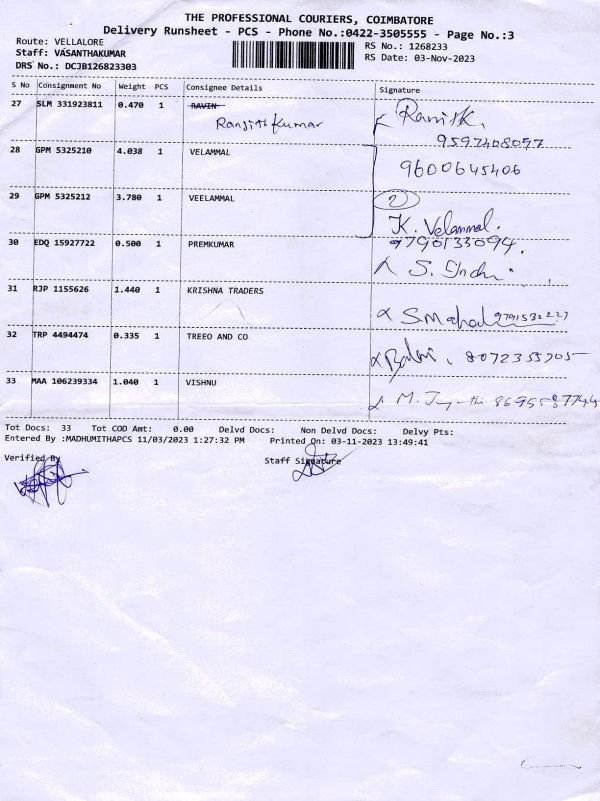 THE PROFESSIONAL COURIERS, COIMBATORE
Delivery Runsheet - PCS - Phone No.:0422-3505555 - Page No.:3
Route: VELLALORE
Staff: VASANTHAKUMAR
DRS No.: DCJB126823303
RS No.: 1268233
RS Date: 03-Nov-2023
S No Consignment No Weight PCS Consignee Details Signature
27 SLM 331923811 0.470 1 RAVIN
Ranjith Kumar
9597408097
28 GPM 5325210 4.038 1 VELAMMAL 9600645406
29 GPM 5325212 3.780 1 VEELAMMAL 2
K. Velammal.
9790133094.
30 EDQ 15927722 0.500 1 PREMKUMAR
31 RJP 1155626 1.440 1 KRISHNA TRADERS
32 TRP 4494474 0.335 1 TREEO AND CO 8072355705
33 MAA 106239334 1.040 1 VISHNU
Tot Docs: 33 Tot COD Amt: 0.00 Delvd Docs: Non Delvd Docs: Delvy Pts:
Entered By :MADHUMITHAPCS 11/03/2023 1:27:32 PM Printed On: 03-11-2023 13:49:41
Verified By Staff Signature